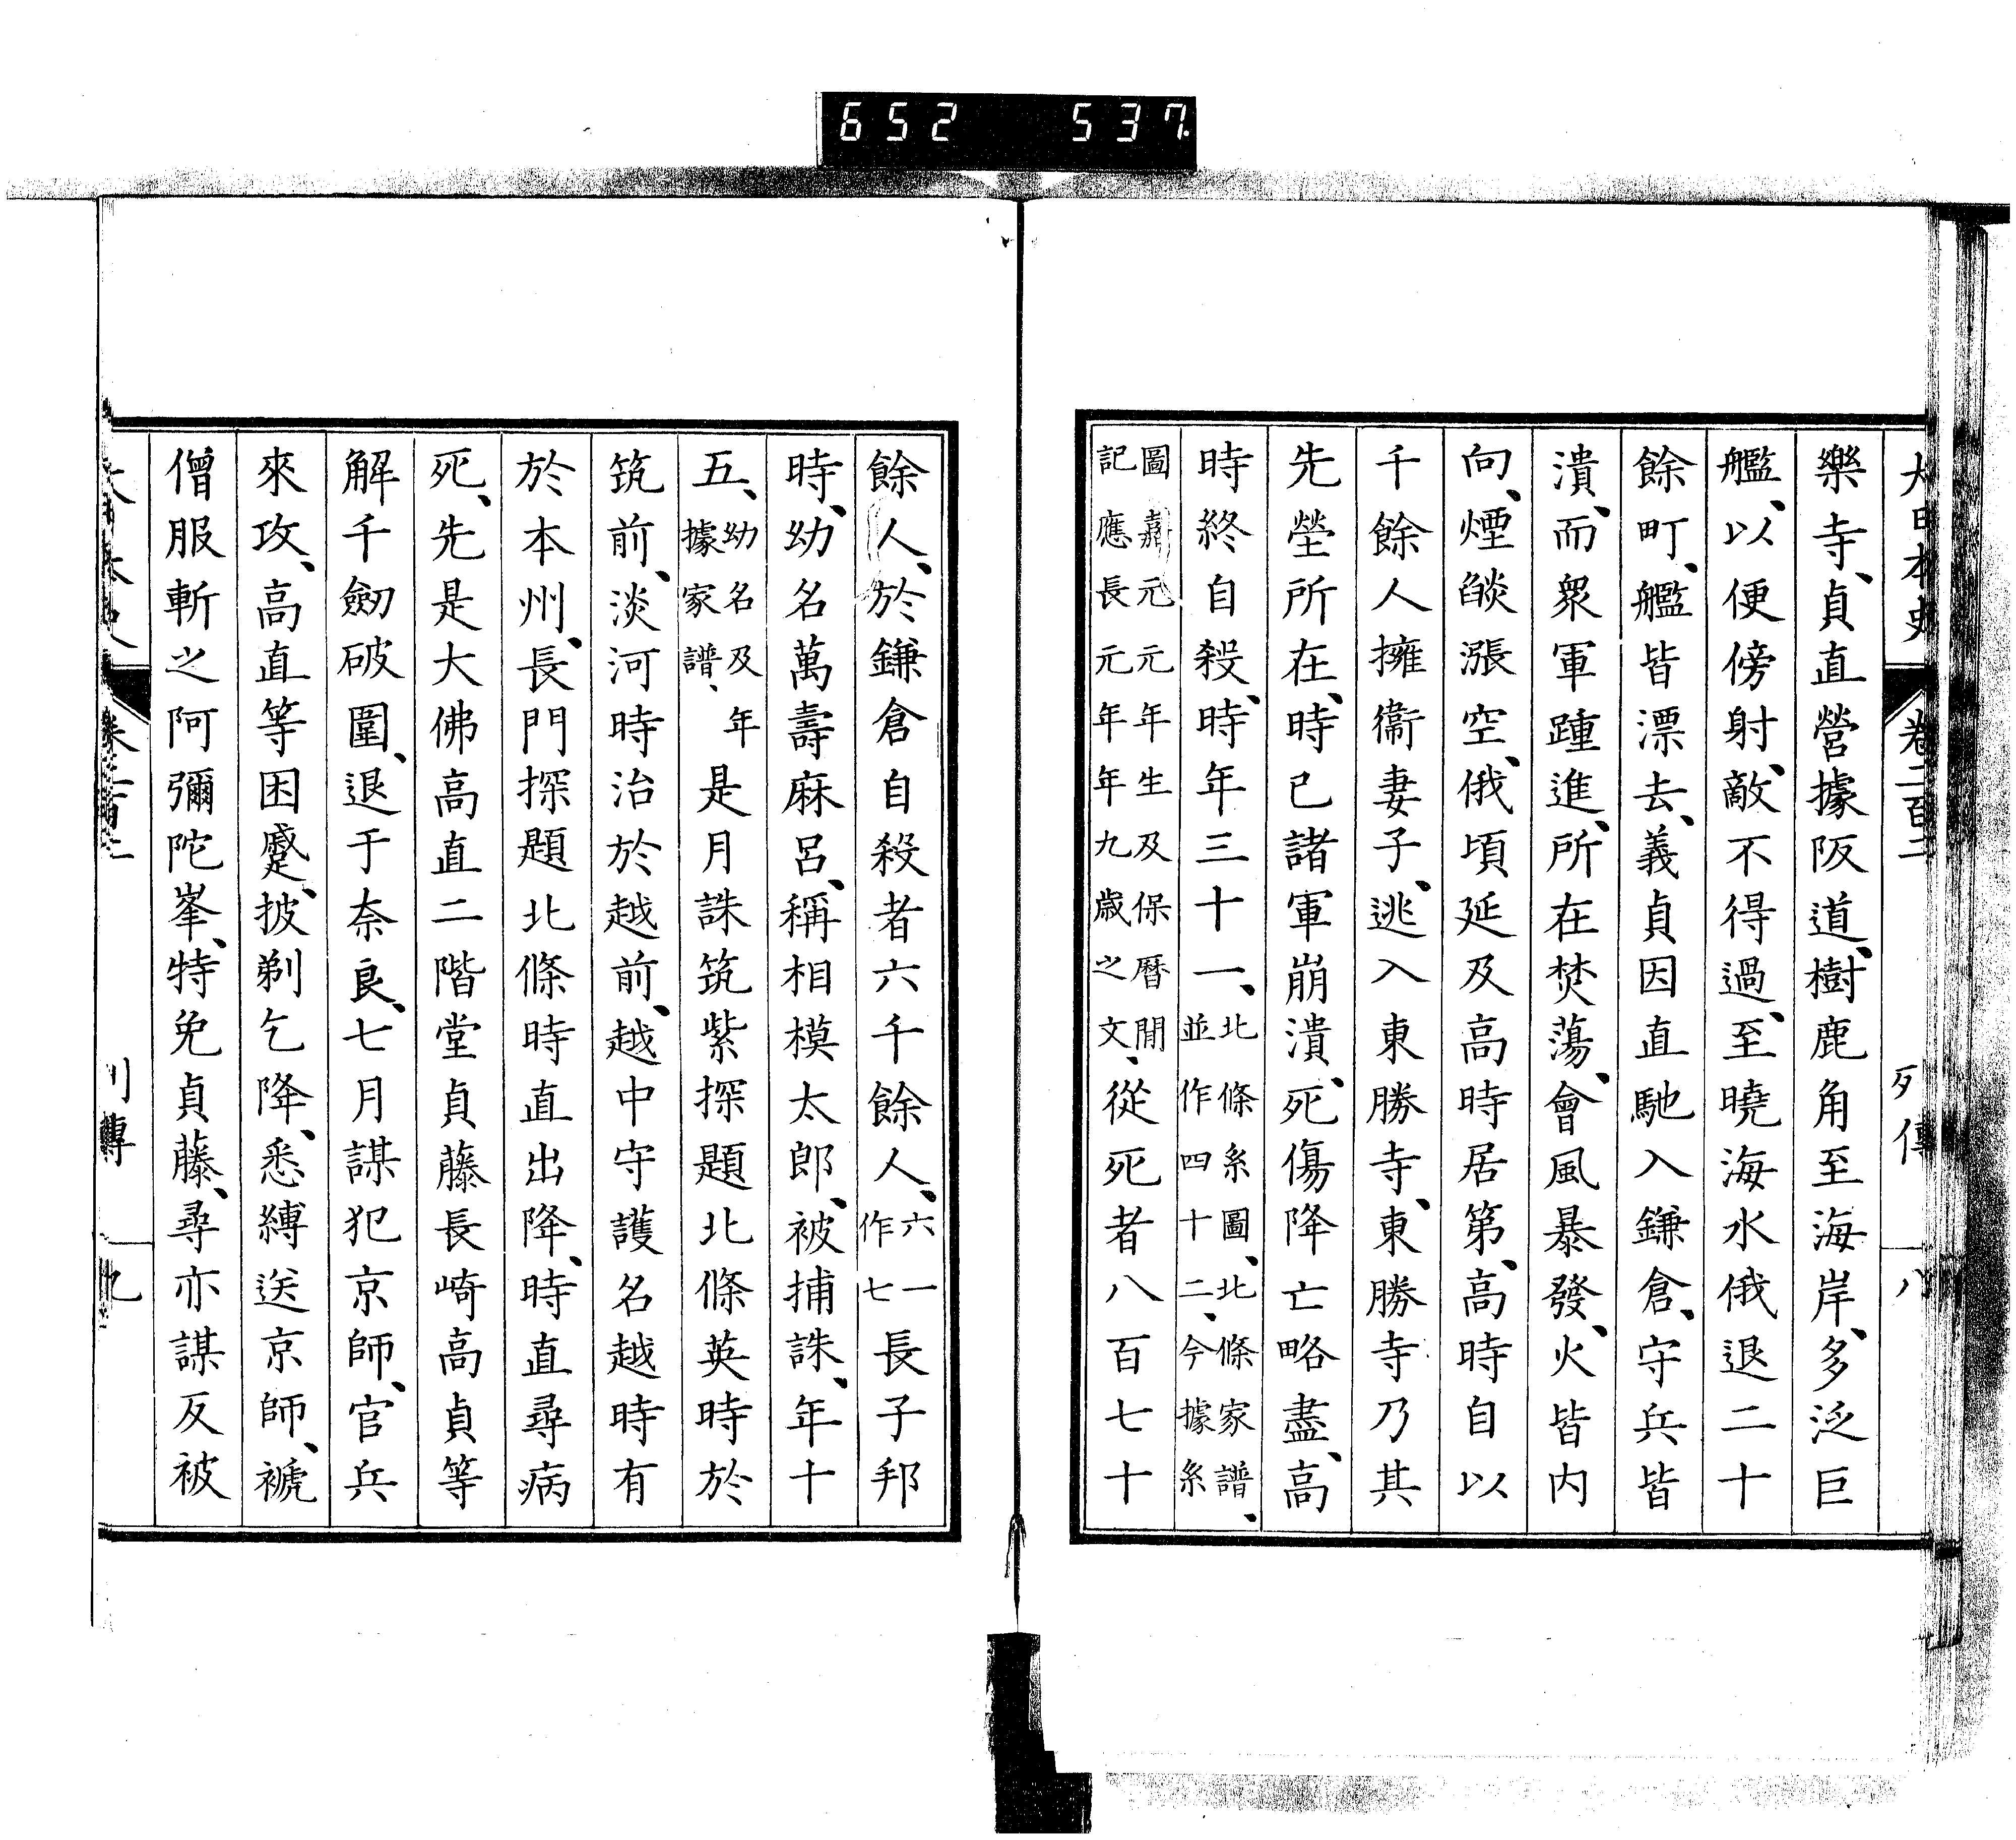 652 537
大日本史 卷二百二 列傳 一八
樂寺、貞直營據阪道、樹鹿角至海岸、多泛巨
艦、以便傍射、敵不得過、至曉海水俄退二十
餘町、艦皆漂去、義貞因直馳入鎌倉、守兵皆
潰、而衆軍踵進、所在焚蕩、會風暴發、火皆内
向、煙燄漲空、俄頃延及高時居第、高時自以
千餘人擁衞妻子、逃入東勝寺、東勝寺乃其
先塋所在、時已諸軍崩潰、死傷降亡略盡、高
時終自殺、時年三十一、北條系圖、北條家譜、並作四十二、今據系
圖嘉元元年生及保曆間記應長元年年九歲之文、從死者八百七十
餘人、於鎌倉自殺者六千餘人、六一作七長子邦
時、幼名萬壽麻呂、稱相模太郎、被捕誅、年十
五、幼名及年據家譜、是月誅筑紫探題北條英時於
筑前、淡河時治於越前、越中守護名越時有
於本州、長門探題北條時直出降、時直尋病
死、先是大佛高直二階堂貞藤長崎高貞等
解千劒破圍、退于奈良、七月謀犯京師、官兵
來攻、高直等困蹙、披剃乞降、悉縛送京師、褫
僧服斬之阿彌陀峯、特免貞藤、尋亦謀反被
大日本史 卷二百二 列傳 一九